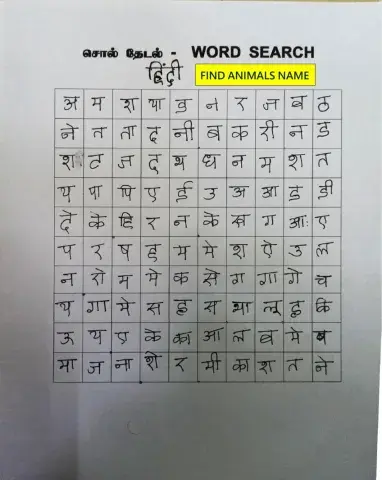 சொல் தேடல் - WORD SEARCH
हिंदी FIND ANIMALS NAME
अ म श या ड न र ज ब ठ
ने त ता द नी ब क री न ड
श ट ज द थ ध न म श त
य पा पि ए ई उ अ आ ड डी
दे कै हि र न के स ग आः ए
प र ष ड म मे श ऐ उ ल
न रो म मे क से ग गा गे च
थ गा मे स ढ स भा लू ढ कि
ऊ य ए के का आ ल ब मे ब
मा ज ना शे र मी का श त ने